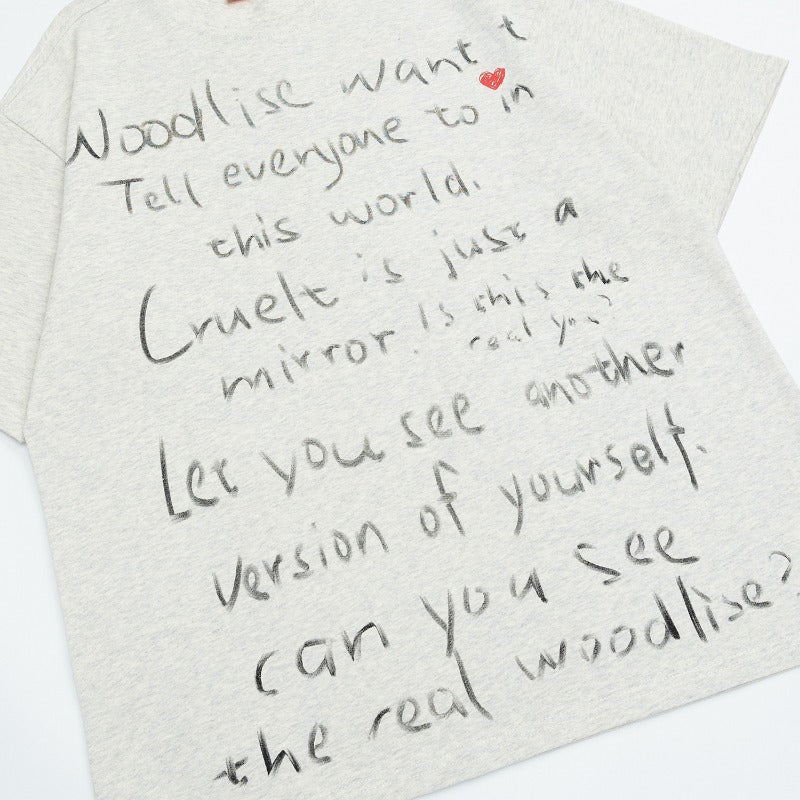 Woodlise want t
Tell everyone to in
this world.
Cruelt is just a
mirror. Is this the
real you?
Let you see another
version of yourself.
can you see
the real woodlise?